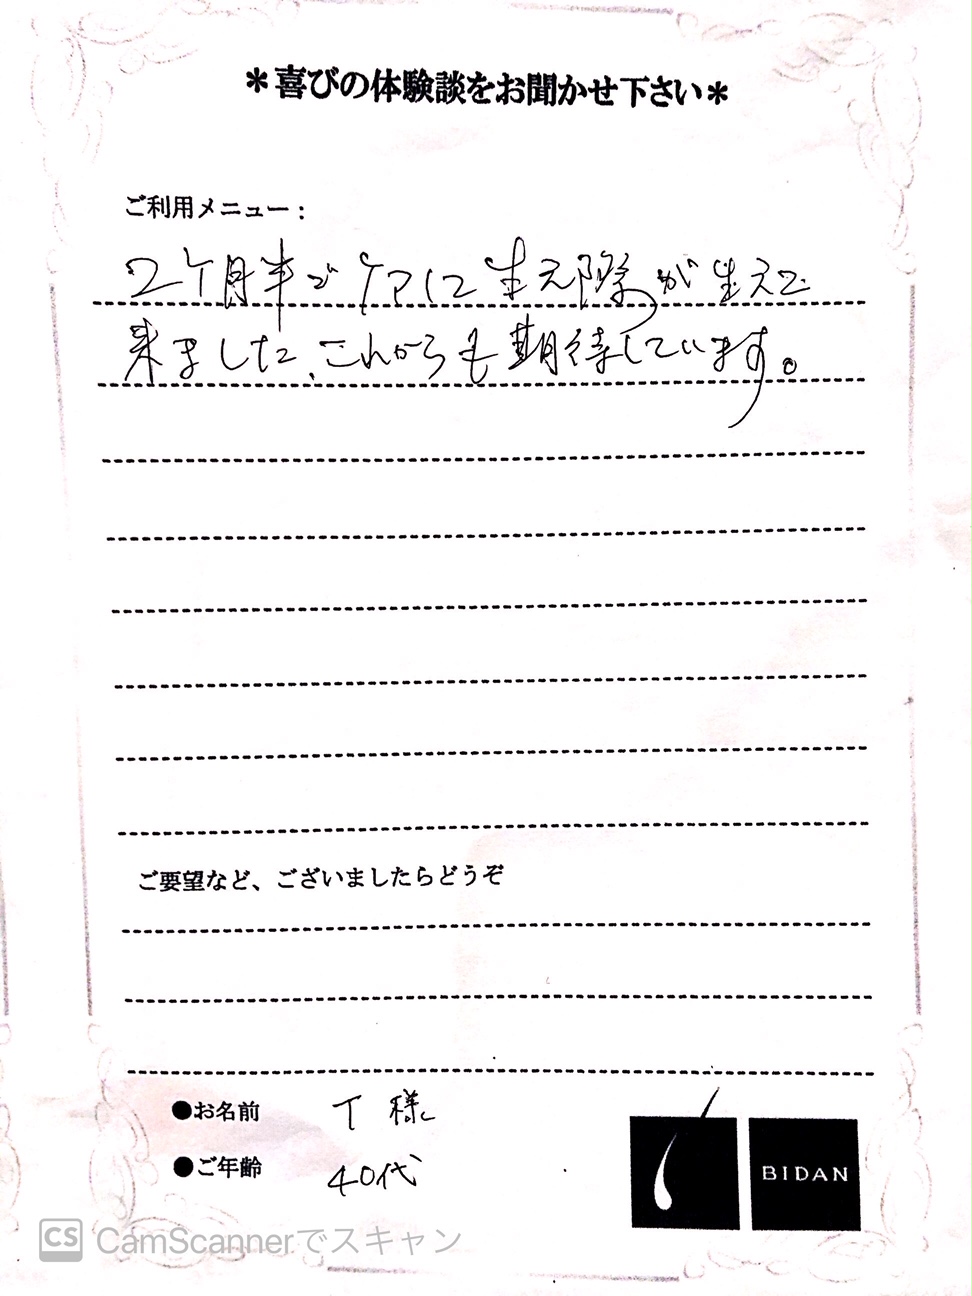 ＊喜びの体験談をお聞かせ下さい＊
ご利用メニュー：
2ケ月半でケアして生え際が生えて
来ました、これからも期待しています。
ご要望など、ございましたらどうぞ
●お名前 T 様
●ご年齢 40代
BIDAN
CS CamScannerでスキャン